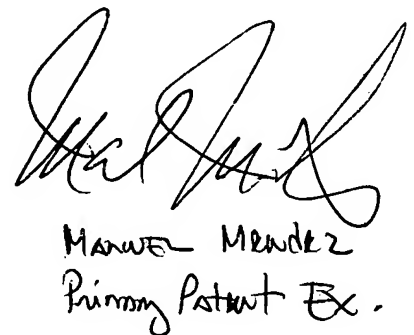 Manuel Mendez
Primary Patent Ex.